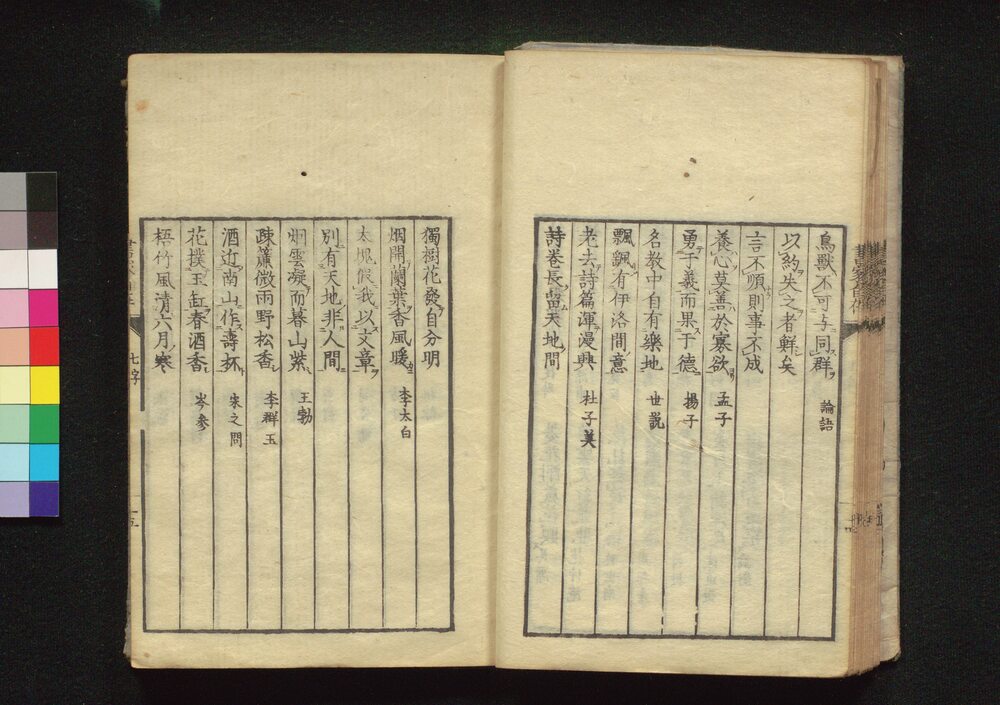 鳥獣不可与同群 論語
以約失之者鮮矣
言不順則事不成
養心莫善於寡欲 孟子
勇于義而果于德 揚子
名教中自有樂地 世説
飄飄有伊洛間意
老去詩篇渾漫興 杜子美
詩卷長留天地間
獨樹花發自分明
烟開蘭葉香風暖 李太白
大塊假我以文章
別有天地非人間
烟雲凝而暮山紫 王勃
疎簾微雨野松香 李群玉
酒近南山作壽杯 宋之問
花撲玉缸春酒香 岑参
梧竹風清六月寒
七字